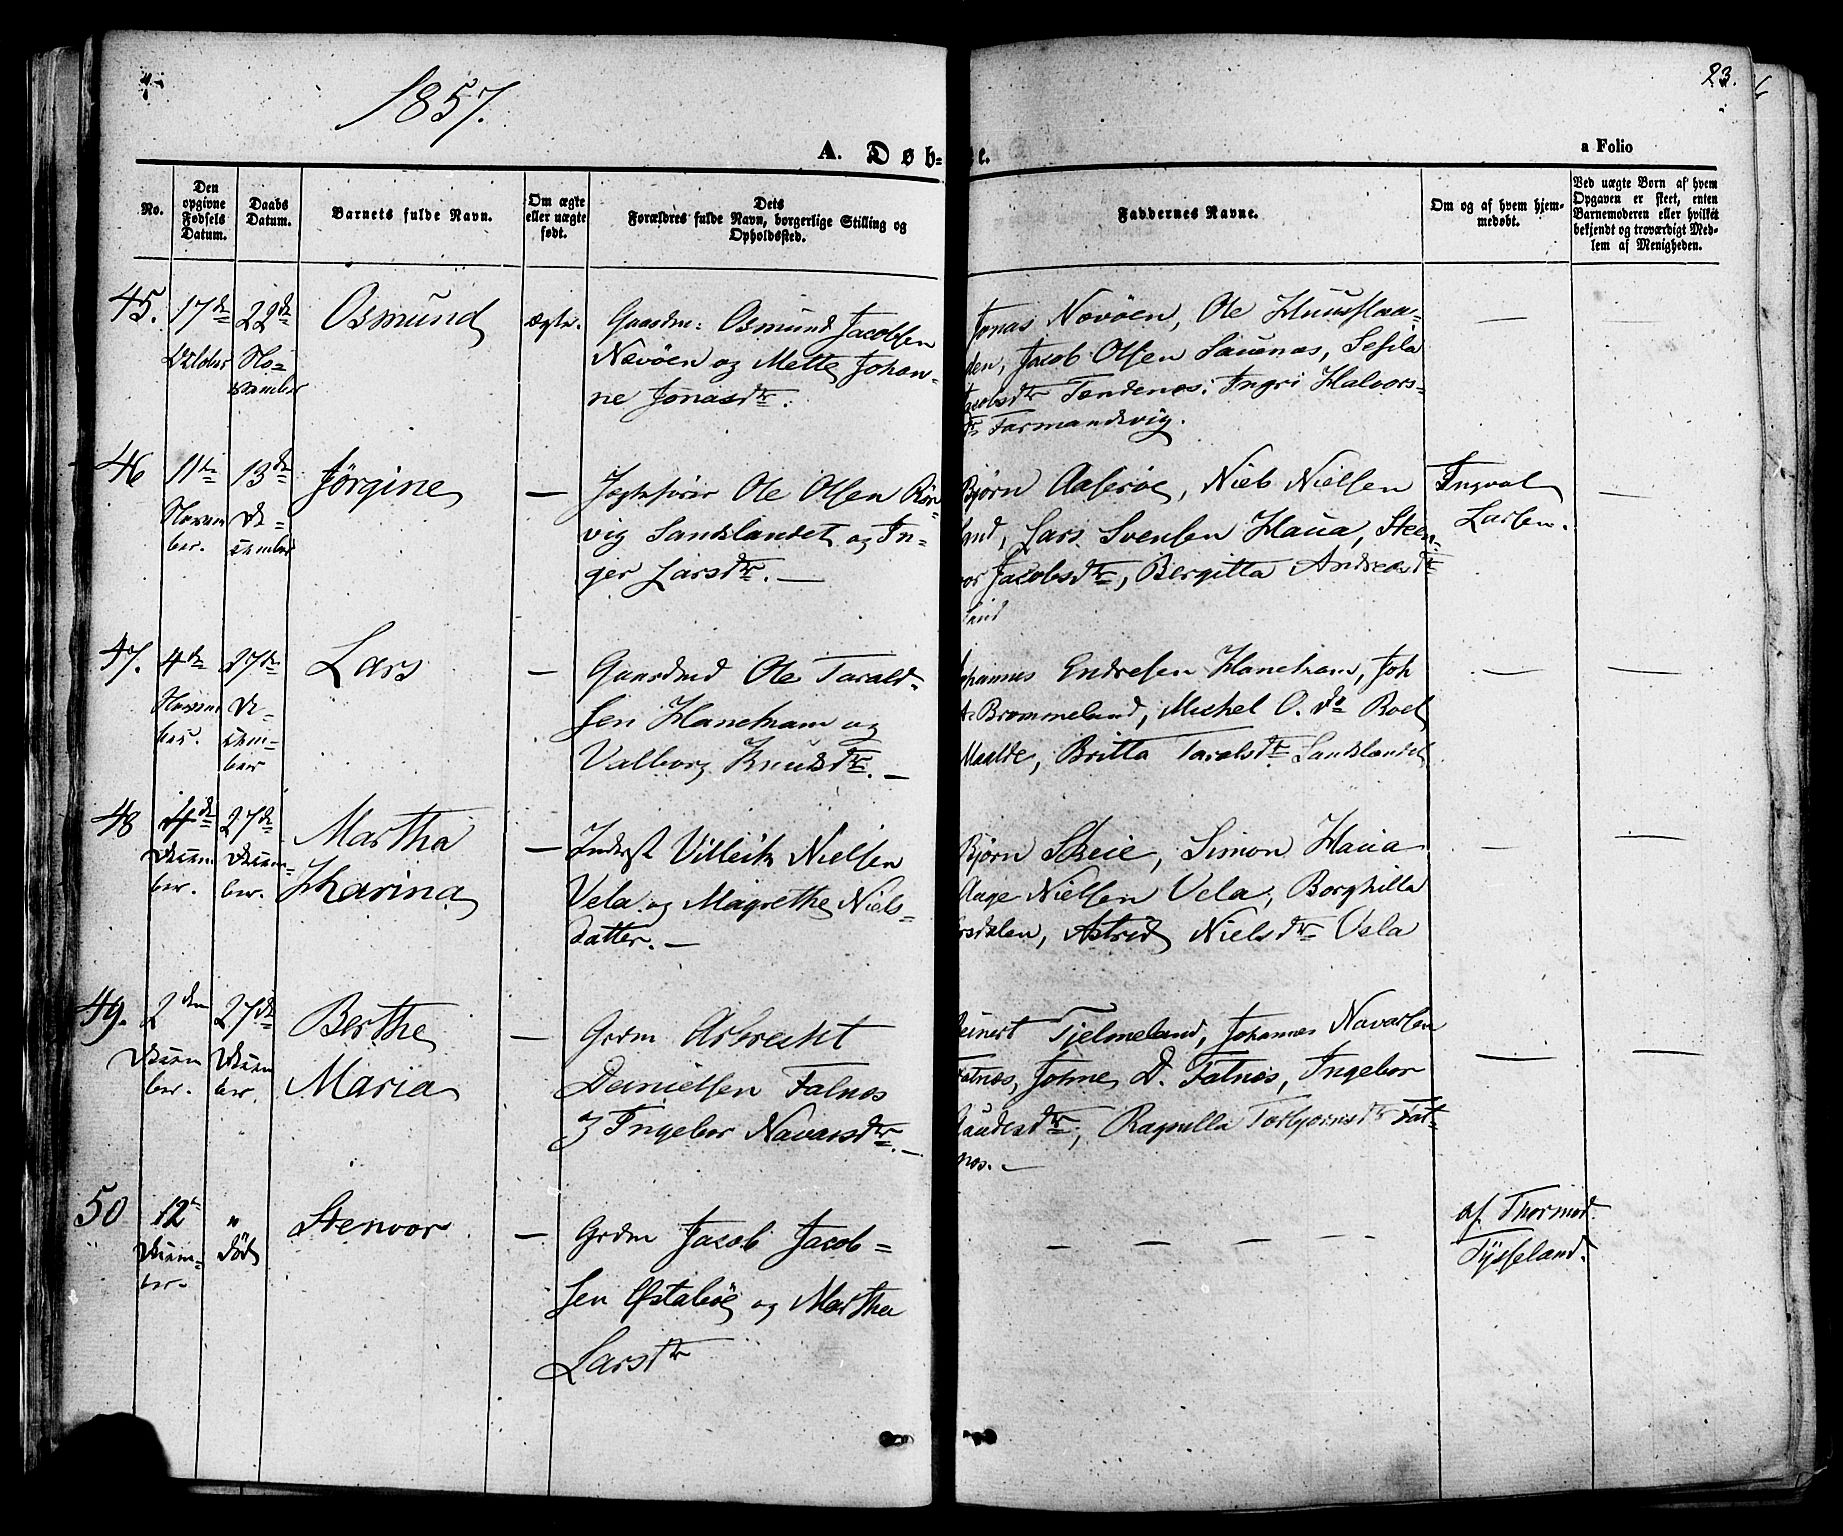 1857.
23.
A. Døb-
te.
a Folio
No.
Den opgivne Fødsels Datum.
Daabs Datum.
Barnets fulde Navn.
Om ægte eller uægte født.
Dets Forældres fulde Navn, borgerlige Stilling og Opholdssted.
Faddernes Navne.
Om og af hvem hjem-
medøbt.
Ved uægte Børn af hvem
Opgaven er skeet, enten
Barnemoderen eller hvilket
bekjendt og troværdigt Med-
lem af Menigheden.
45. 17de Oktober 22de No-vember Osmund ægte.
Gaardm: Osmund Jacobsen
Nevöen og Mette Johan-
ne Jonasdtr.
Jonas Nevöen, Ole Huusflaa-
den, Jacob Olsen Sauenas, Sesila
Jacobsdtr Tendenes, Ingri Halvors-
dtr Tarmandsvig.
—
46 11te Novem ber. 13de De-cember Jørgine —
Jagtefører Ole Olsen Rør-
vig Sandslandet og In-
ger Larsdtr. —
Bjørn Aaserøe, Niels Nielsen
land, Lars Svensen Haua, Steen-
vor Jacobsdtr, Bergitta Andreasdtr
land
Ingval
Larsen.
—
47. 4de Novem ber. 27de De-cem-ber Lars —
Gaardmd Ole Tarald-
sen Haneham og
Valborg Knudsdtr. —
Johannes Endresen Haneham, Joh
A. Brommeland, Michel O. do Roel
Maalde, Britta Taralsdtr Sandslandet
— —
48 4de Decem ber. 27de Decem-ber. Martha
Karina —
Inderst Villeik Nielsen
Vela og Magrethe Niels-
datter. —
Bjørn Skeie, Simon Haua
Aage Nielsen Vela, Borghilla
dalen, Astrid Nielsdtr Vela
— —
49. 2den Decem ber. 27de Decem ber. Berthe
Maria —
Grdm Abrecht
Danielsen Fatnes
& Ingebor Navarsdtr. —
Reinert Tjelmeland, Johannes Navarsen
Fatnes, Johne D. Fatnes, Ingebor
Gaudesdtr, Ragnilla Torbjørnsdtr Fat-
nes. —
— —
50 12te Decem-ber. " død Stenvor —
Grdm Jacob Jacob-
sen Østabøe og Martha
Larsdtr
— — — —
af Thormod
Tysseland.